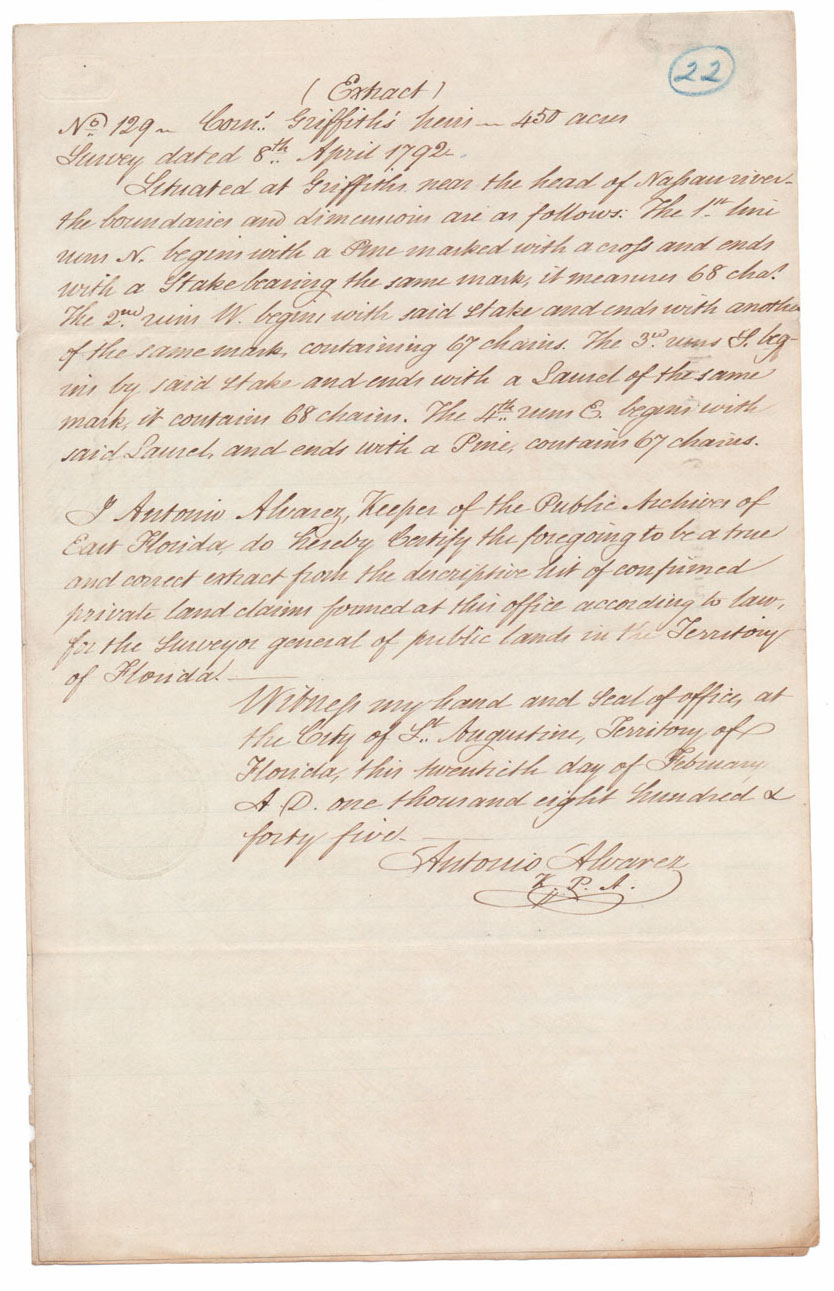 22
(Extract)
No. 129 ~ Corns. Griffith's heirs ~ 450 acres
Survey dated 8th April 1792.
Situated at Griffiths near the head of Nassau river-
the boundaries and dimensions are as follows: The 1st line
runs N. begins with a Pine marked with a cross and ends
with a Stake bearing the same mark, it measures 68 chas.
The 2nd runs W. begins with said stake and ends with another
of the same mark, containing 67 chains. The 3d runs S. beg-
ins by said stake and ends with a Laurel of the same
mark, it contains 68 chains. The 4th runs E. begins with
said Laurel, and ends with a Pine, contains 67 chains.
I Antonio Alvarez, Keeper of the Public Archives of
East Florida, do hereby Certify the foregoing to be a true
and correct extract from the descriptive list of confirmed
private land claims formed at this office according to law,
for the Surveyor general of public lands in the Territory
of Florida.
Witness my hand and seal of office, at
the City of St. Augustine, Territory of
Florida, this twentieth day of February
A.D. one thousand eight hundred &
forty five.
Antonio Alvarez
K. P. A.